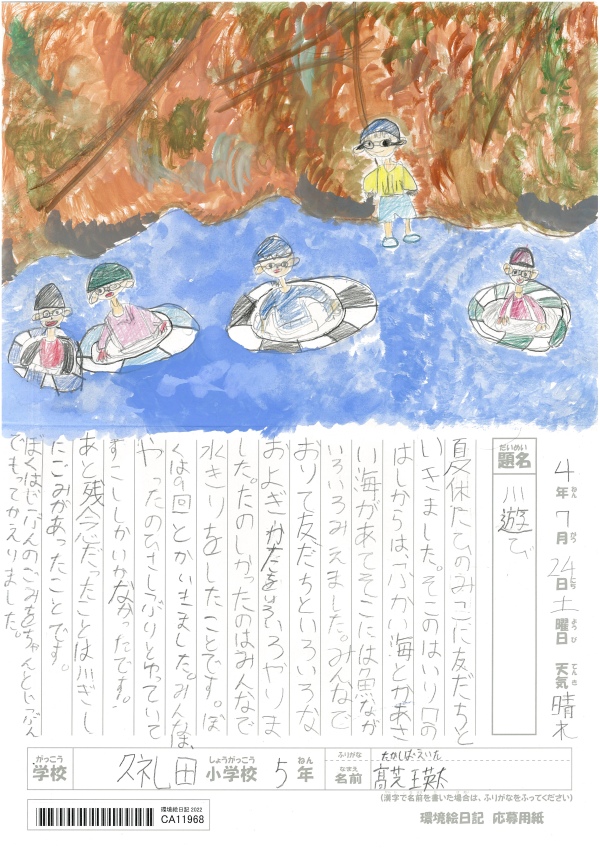 4年7月24日土曜日 天気 晴れ
ねん がつ にち ようび てんき
だいめい
題名
川遊び
夏休たひのみこに友だちと
いきました。そこのはいり口の
はしからは、ふかい海とかあさ
い海があてそこには魚なが
いろいろみえました。みんなで
おりて友だちといろいろな
およぎかたをいろいろやりま
した。たのしかったのはみんなで
水きりをしたことです。ぼ
くは9回とかいきました。みんなは、
やったのひさしぶりとゆっていて
すこししかいかなかったです。
あと残念だったことは川ぎし
たごみがあったことです。
ぼくはじぶんのごみをちゃんとじぶん
でもってかえりました。
がっこう しょうがっこう ねん
学校 久礼田 小学校 5年
ふりがな たかしば えいた
なまえ
名前 髙芝 瑛太
(漢字で名前を書いた場合は、ふりがなをふってください)
環境絵日記 2022
CA11968
環境絵日記 応募用紙